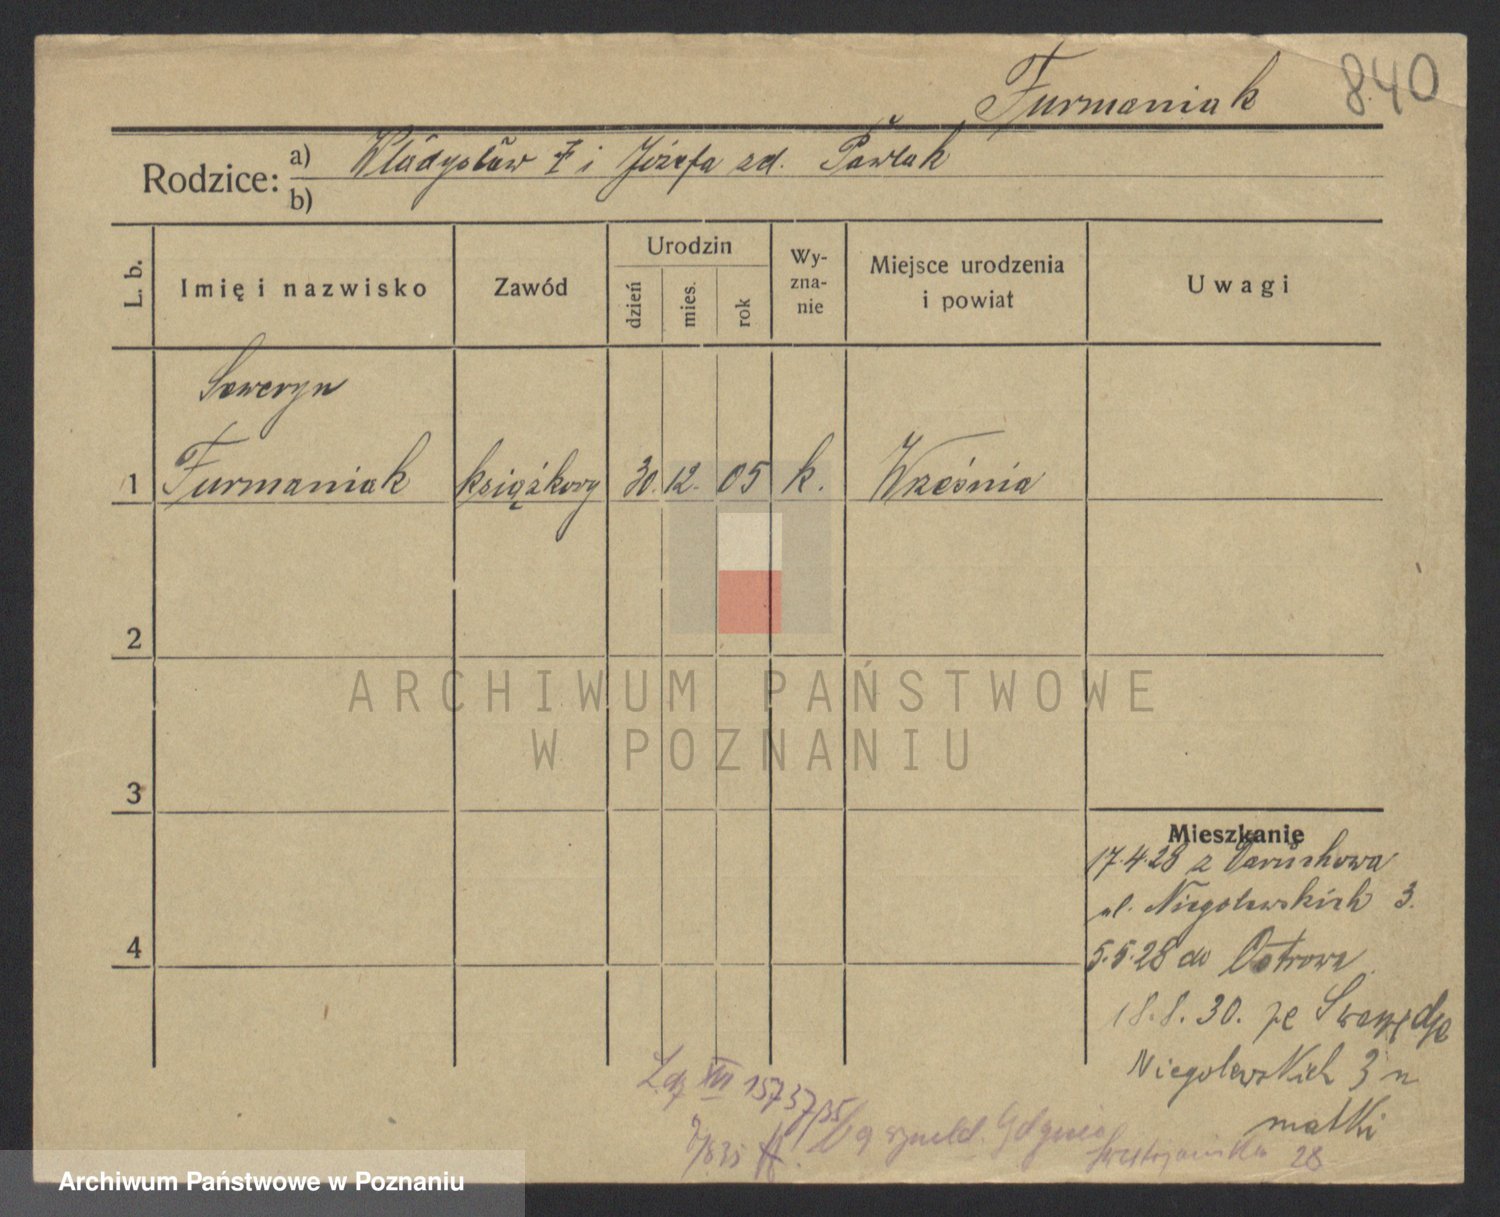 Furmaniak
840
Rodzice: a) Władysław F i Józefa zd. Pawlak
b)
L. b.
Imię i nazwisko
Zawód
Urodzin
dzień
mies.
rok
Wy-
zna-
nie
Miejsce urodzenia
i powiat
Uwagi
Seweryn
1 Furmaniak książkowy 30. 12. 05 k. Września
2
3
4
Mieszkanie
17.4.28 z
ul. Niegolewskich 3.
5.5.28 do Ostrowa
18.8.30. ze Swarzędza
Niegolewskich 3 u
matki
Ldz VIII 15737/35
wg zameld. Gdynia
Świętojańska 28
ARCHIWUM PAŃSTWOWE
W POZNANIU
Archiwum Państwowe w Poznaniu